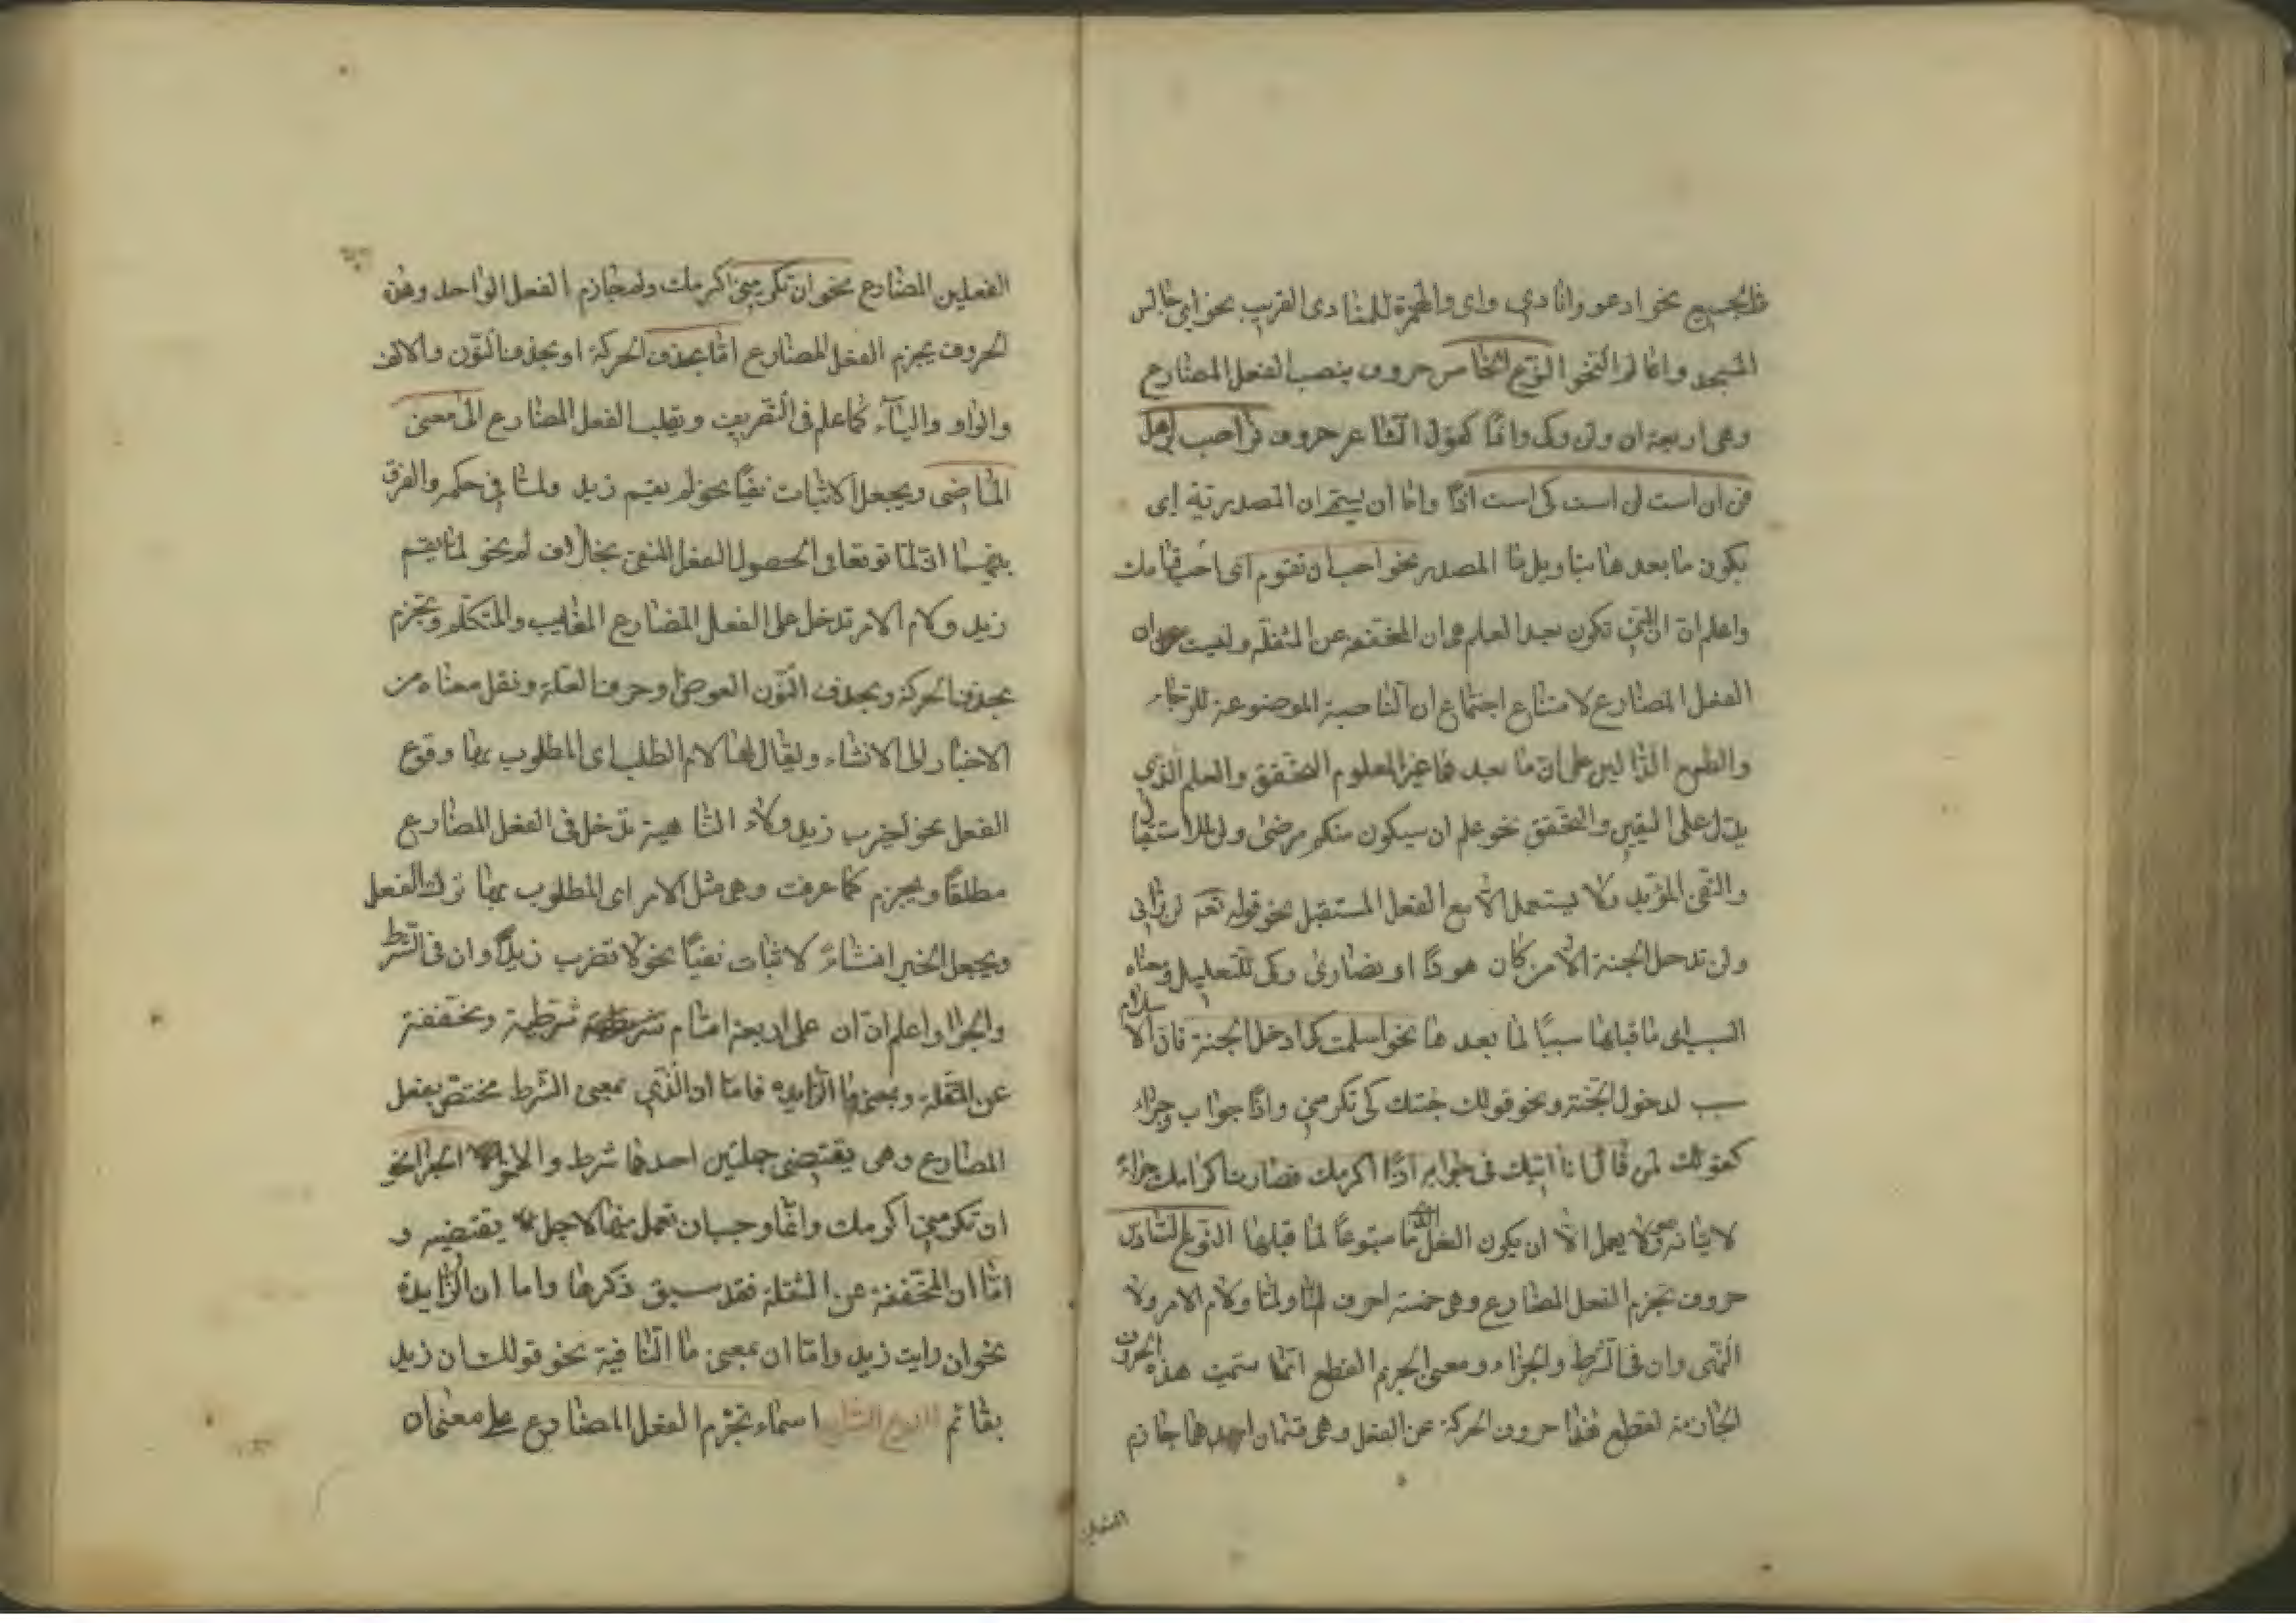 فالجميع نحو ادعو وانادي واى والهمزة للمنادى القريب نحو اى جالس
المسجد وامالم النحو النوع الخامس حروف ينصب الفعل المضارع
وهى اربعة ان ولن وكى واذًا كقول الشاعر حروف نواصب
فن ان است لن است كى است اذًا واما ان يسمى ان المصدرية اى
يكون ما بعدها بتاويل ما المصدر نحو احب ان تقوم اى احب قيامك
واعلم انّ ان التي تكون بعد العلم هى ان المخففة عن المثقلة وليست ان
الفعل المضارع لامتناع اجتماع ان الناصبة الموضوعة للرجاء
والطمع الدّالين على انّ ما بعدهما غير المعلوم التحقق والعلم الّذي
يدّل على اليقين والتحقق نحو علم ان سيكون منكم مرضى ولن للاستقبال
والنفى المؤبد ولا يستعمل الّا مع الفعل المستقبل نحو قوله تعه لن ترانى
ولن تدخل الجنة الّا من كان هودًا او نصارى وكى للتعليل ومعناه
السبب اى ما قبلها سببًا لما بعدها نحو اسلمت كى ادخل الجنة فان الاسلام
سبب لدخول الجنّة ونحو قولك جئتك كى تكرمني واذًا جواب وجزاء
كقولك لمن قال انا اتيك فى جوابه اذًا اكرمك فصارت اكرامك جزاءً
لاتيانه ولا يعمل الّا ان يكون الفعل متبوعًا لما قبلها النوع السّادس
حروف تجزم الفعل المضارع وهى خمسة احرف لم ولمّا ولام الامر ولا
النّهى وان فى الشرط والجزاء ومعنى الجزم القطع انّما سمّيت هذه الحروف
الجازمة لقطع هذا حروف الحركة عن الفعل وهى قسمان احدهما جازم
الفعلين
الفعلين المضارع نحو ان تكرمني اكرمك ولم جازم الفعل الواحد وهن
الحروف يجزم الفعل المضارع امّا بحذف الحركة او بحذف النّون والالف
والواو والياء كما علم فى التّصريف ويقلب الفعل المضارع الى معنى
الماضى ويجعل الاثبات نفيًا نحو لم يقم زيد ولمّا فى حكمه والفرق
بينهما انّ لمّا توقعا فى الحصول الفعل المنفى بخلاف لم نحو لمّا يقم
زيد ولام الامر تدخل على الفعل المضارع الغايب والمتكلّم وتجزم
بحذف الحركة وبحذف النّون العوضى وحرف العلّة ونقل معناه من
الاخبار الى الانشاء ويقال لها لام الطلب اى المطلوب بها وقوع
الفعل نحو ليضرب زيد ولاء النّاهية تدخل فى الفعل المضارع
مطلقًا ويجزم كما عرفت وهى مثل الامر اى المطلوب بها ترك الفعل
ويجعل الخبر انشاء لاثبات نفيًا نحو لا تضرب زيدًا وان فى الشّرط
والجزا واعلم انّ ان على اربعة اقسام شرطية ومخفّفة
عن المثقلة وبمعنى ما الزّايده فامّا ان الّذي بمعنى الشّرط مختصّ بفعل
المضارع وهى يقتضى جملتين احدهما شرط والاخر الجزا نحو
ان تكرمني اكرمك وانّما وجب ان تعمل فيهما لاجل يقتضيه و
امّا ان المخفّفة عن المثقلة فقد سبق ذكرها واما ان الزّايدة
نحو ان رايت زيد وامّا ان بمعنى ما النّافية نحو قولك ان زيد
بقائم النوع السّابع اسماء تجزم الفعل المضارع على معنى ان